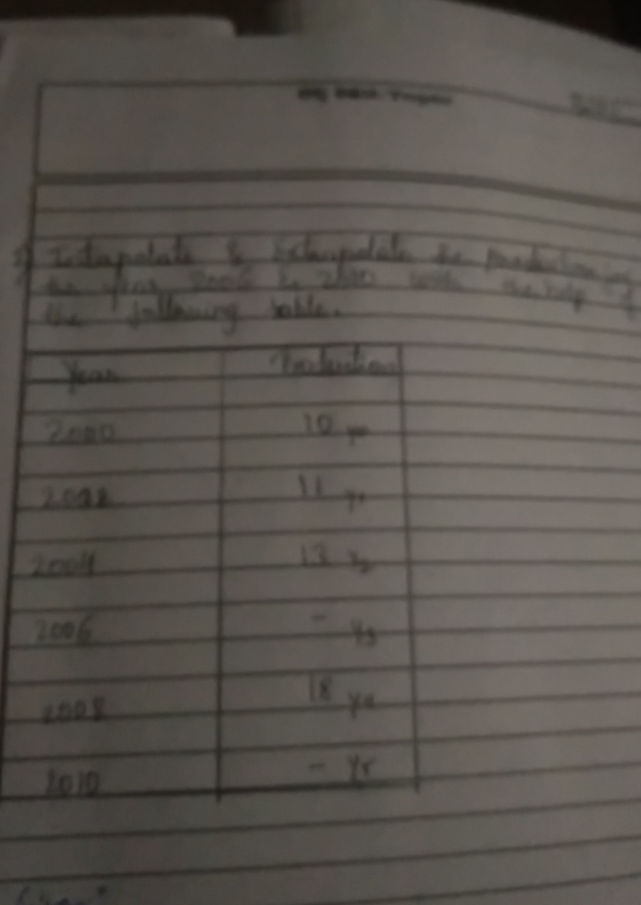 Interpolate & Extrapolate the Production for
the year 2006 & 2010 with the help of
the following table.
Year Production
2000 10 y0
2002 11 y1
2004 13 y2
2006 - y3
2008 18 y4
2010 - y5